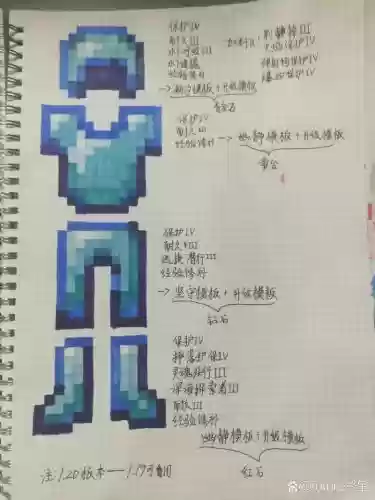 保护IV
耐久III
水下呼吸III
水下速掘
经验修补
荆棘III
火焰保护IV
弹射物保护IV
爆炸保护IV
保护IV
耐久III
经验修补
→幽静模板+升级模板
保护IV
耐久III
迅捷潜行III
经验修补
→坚守模板+升级模板
红石
保护IV
摔落护保IV
灵魂疾行III
深海探索者III
耐久III
经验修补
幽静模板+升级模板
红石
注:1.20版本——1.19可用